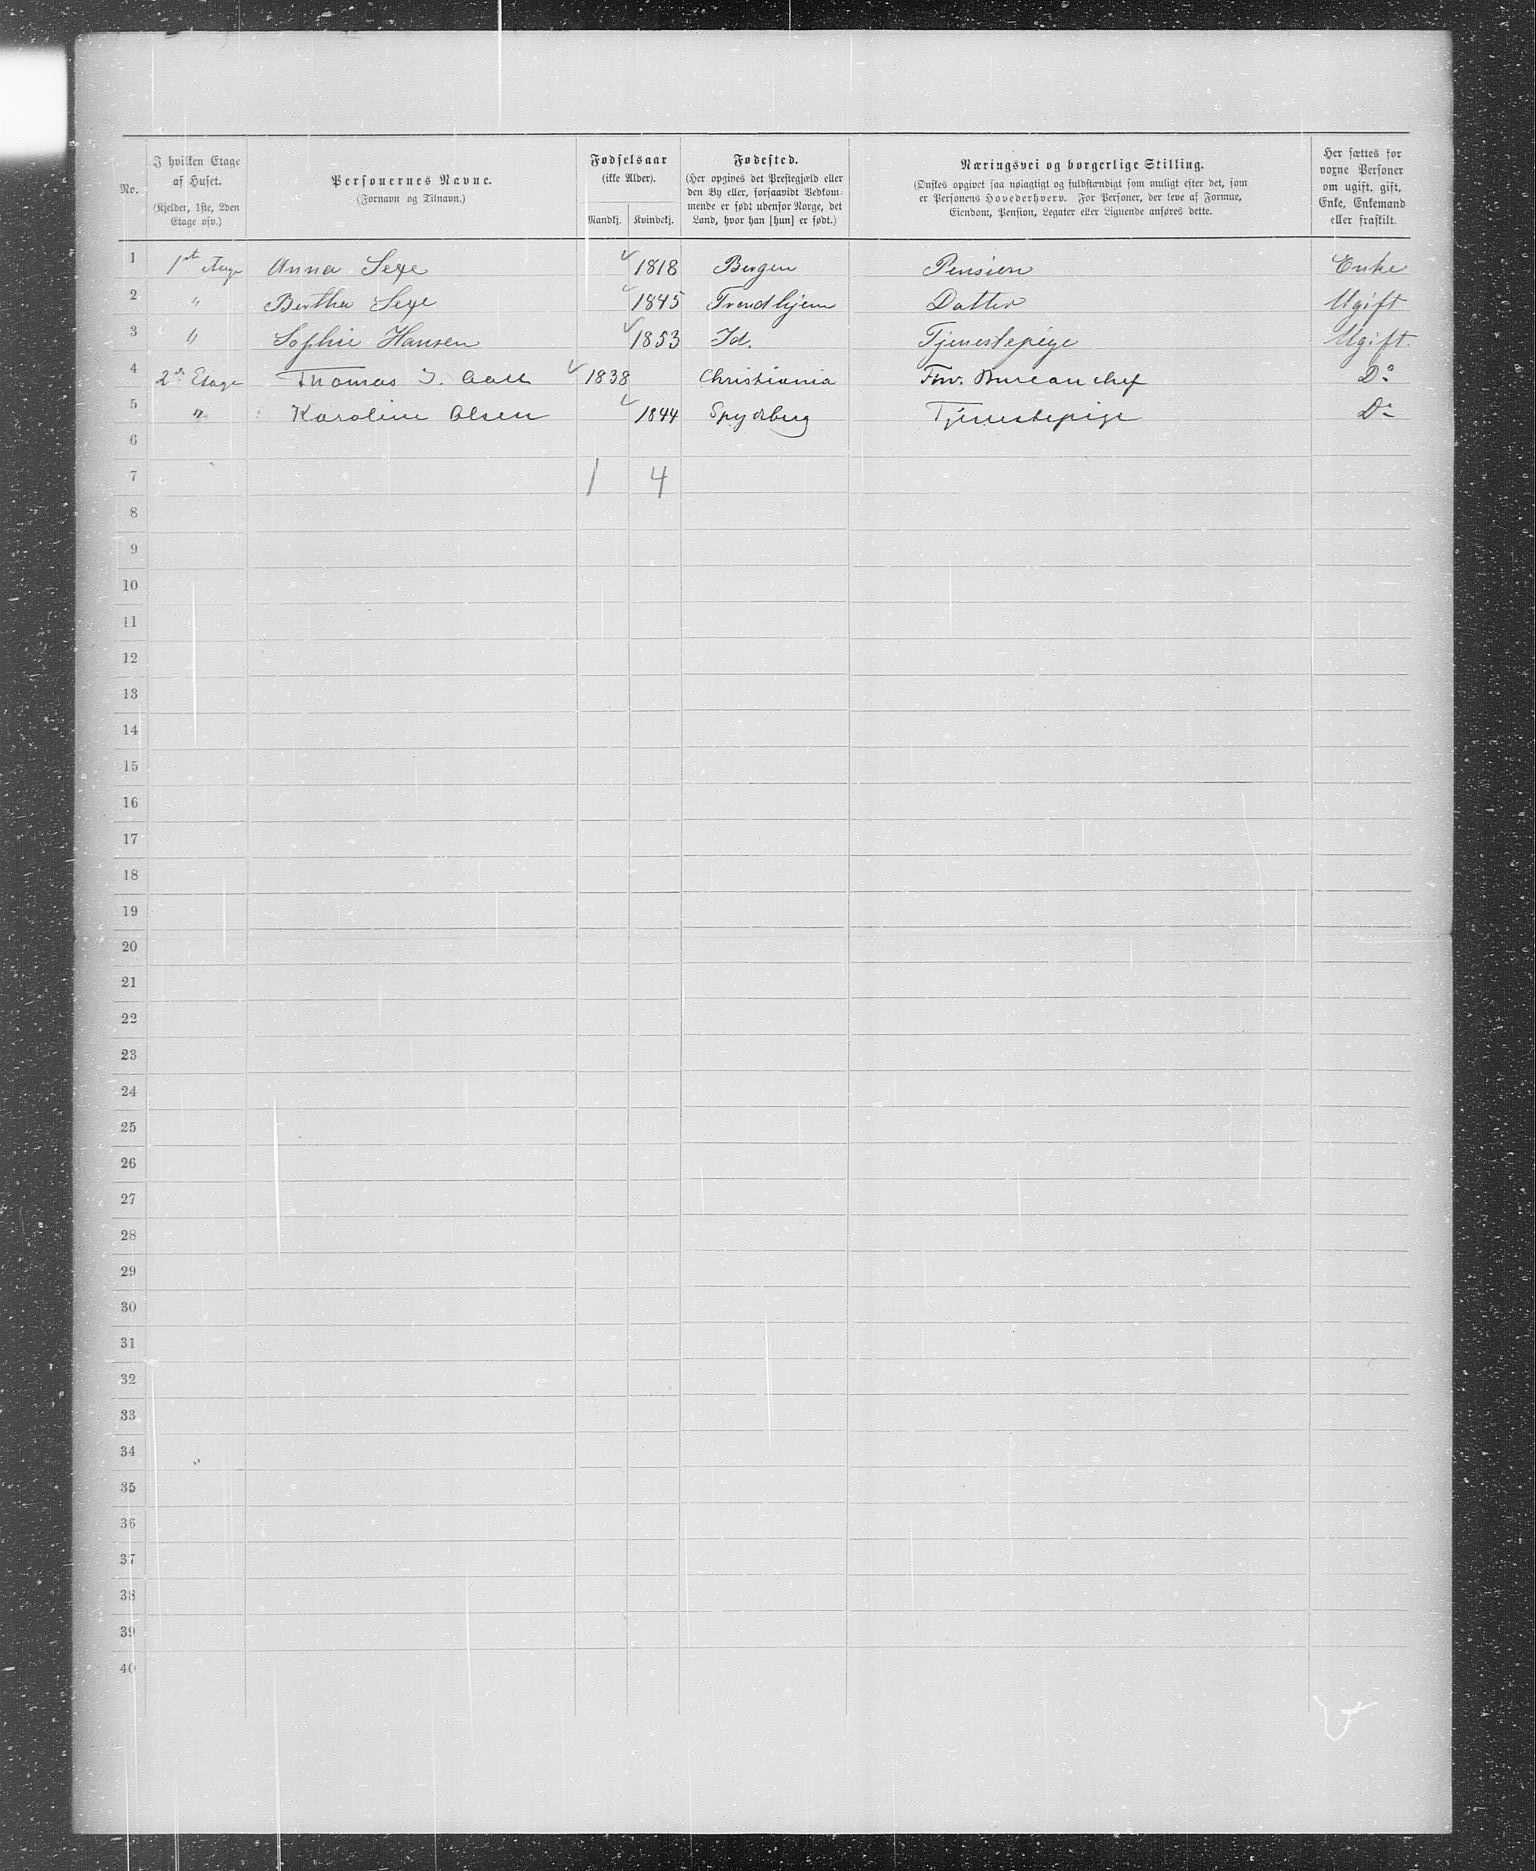 No.
I hvilken Etage af Huset.
(Kjelder, 1ste, 2den Etage osv.)
Personernes Navne.
(Fornavn og Tilnavn.)
Fødselsaar
(ikke Alder).
Mandkj. Kvindekj.
Fødested.
(Her opgives det Prestegjæld eller
den By eller, forsaavidt Vedkom-
mende er født udenfor Norge, det
Land, hvor han [hun] er født.)
Næringsvei og borgerlige Stilling.
(Ønskes opgivet saa nøiagtigt og fuldstændigt som muligt efter det, som
er Personens Hovederhverv. For Personer, der leve af Formue,
Eiendom, Pension, Legater eller Lignende anføres dette.
Her sættes for
voxne Personer
om ugift, gift,
Enke, Enkemand
eller fraskilt.
1 1st Etage Anna Sexe 1818 Bergen Pension Enke
2 " Berthe Sexe 1845 Trondhjem Datter Ugift
3 " Sophie Hansen 1853 Id. Tjenestepige Ugift.
4 2den Etage Thomas J. Aall 1838 Christiania Fhv. Bureauchef Do
5 " Karoline Olsen 1844 Spydberg Tjenestepige Do
6
7 1 4
8
9
10
11
12
13
14
15
16
17
18
19
20
21
22
23
24
25
26
27
28
29
30
31
32
33
34
35
36
37
38
39
40